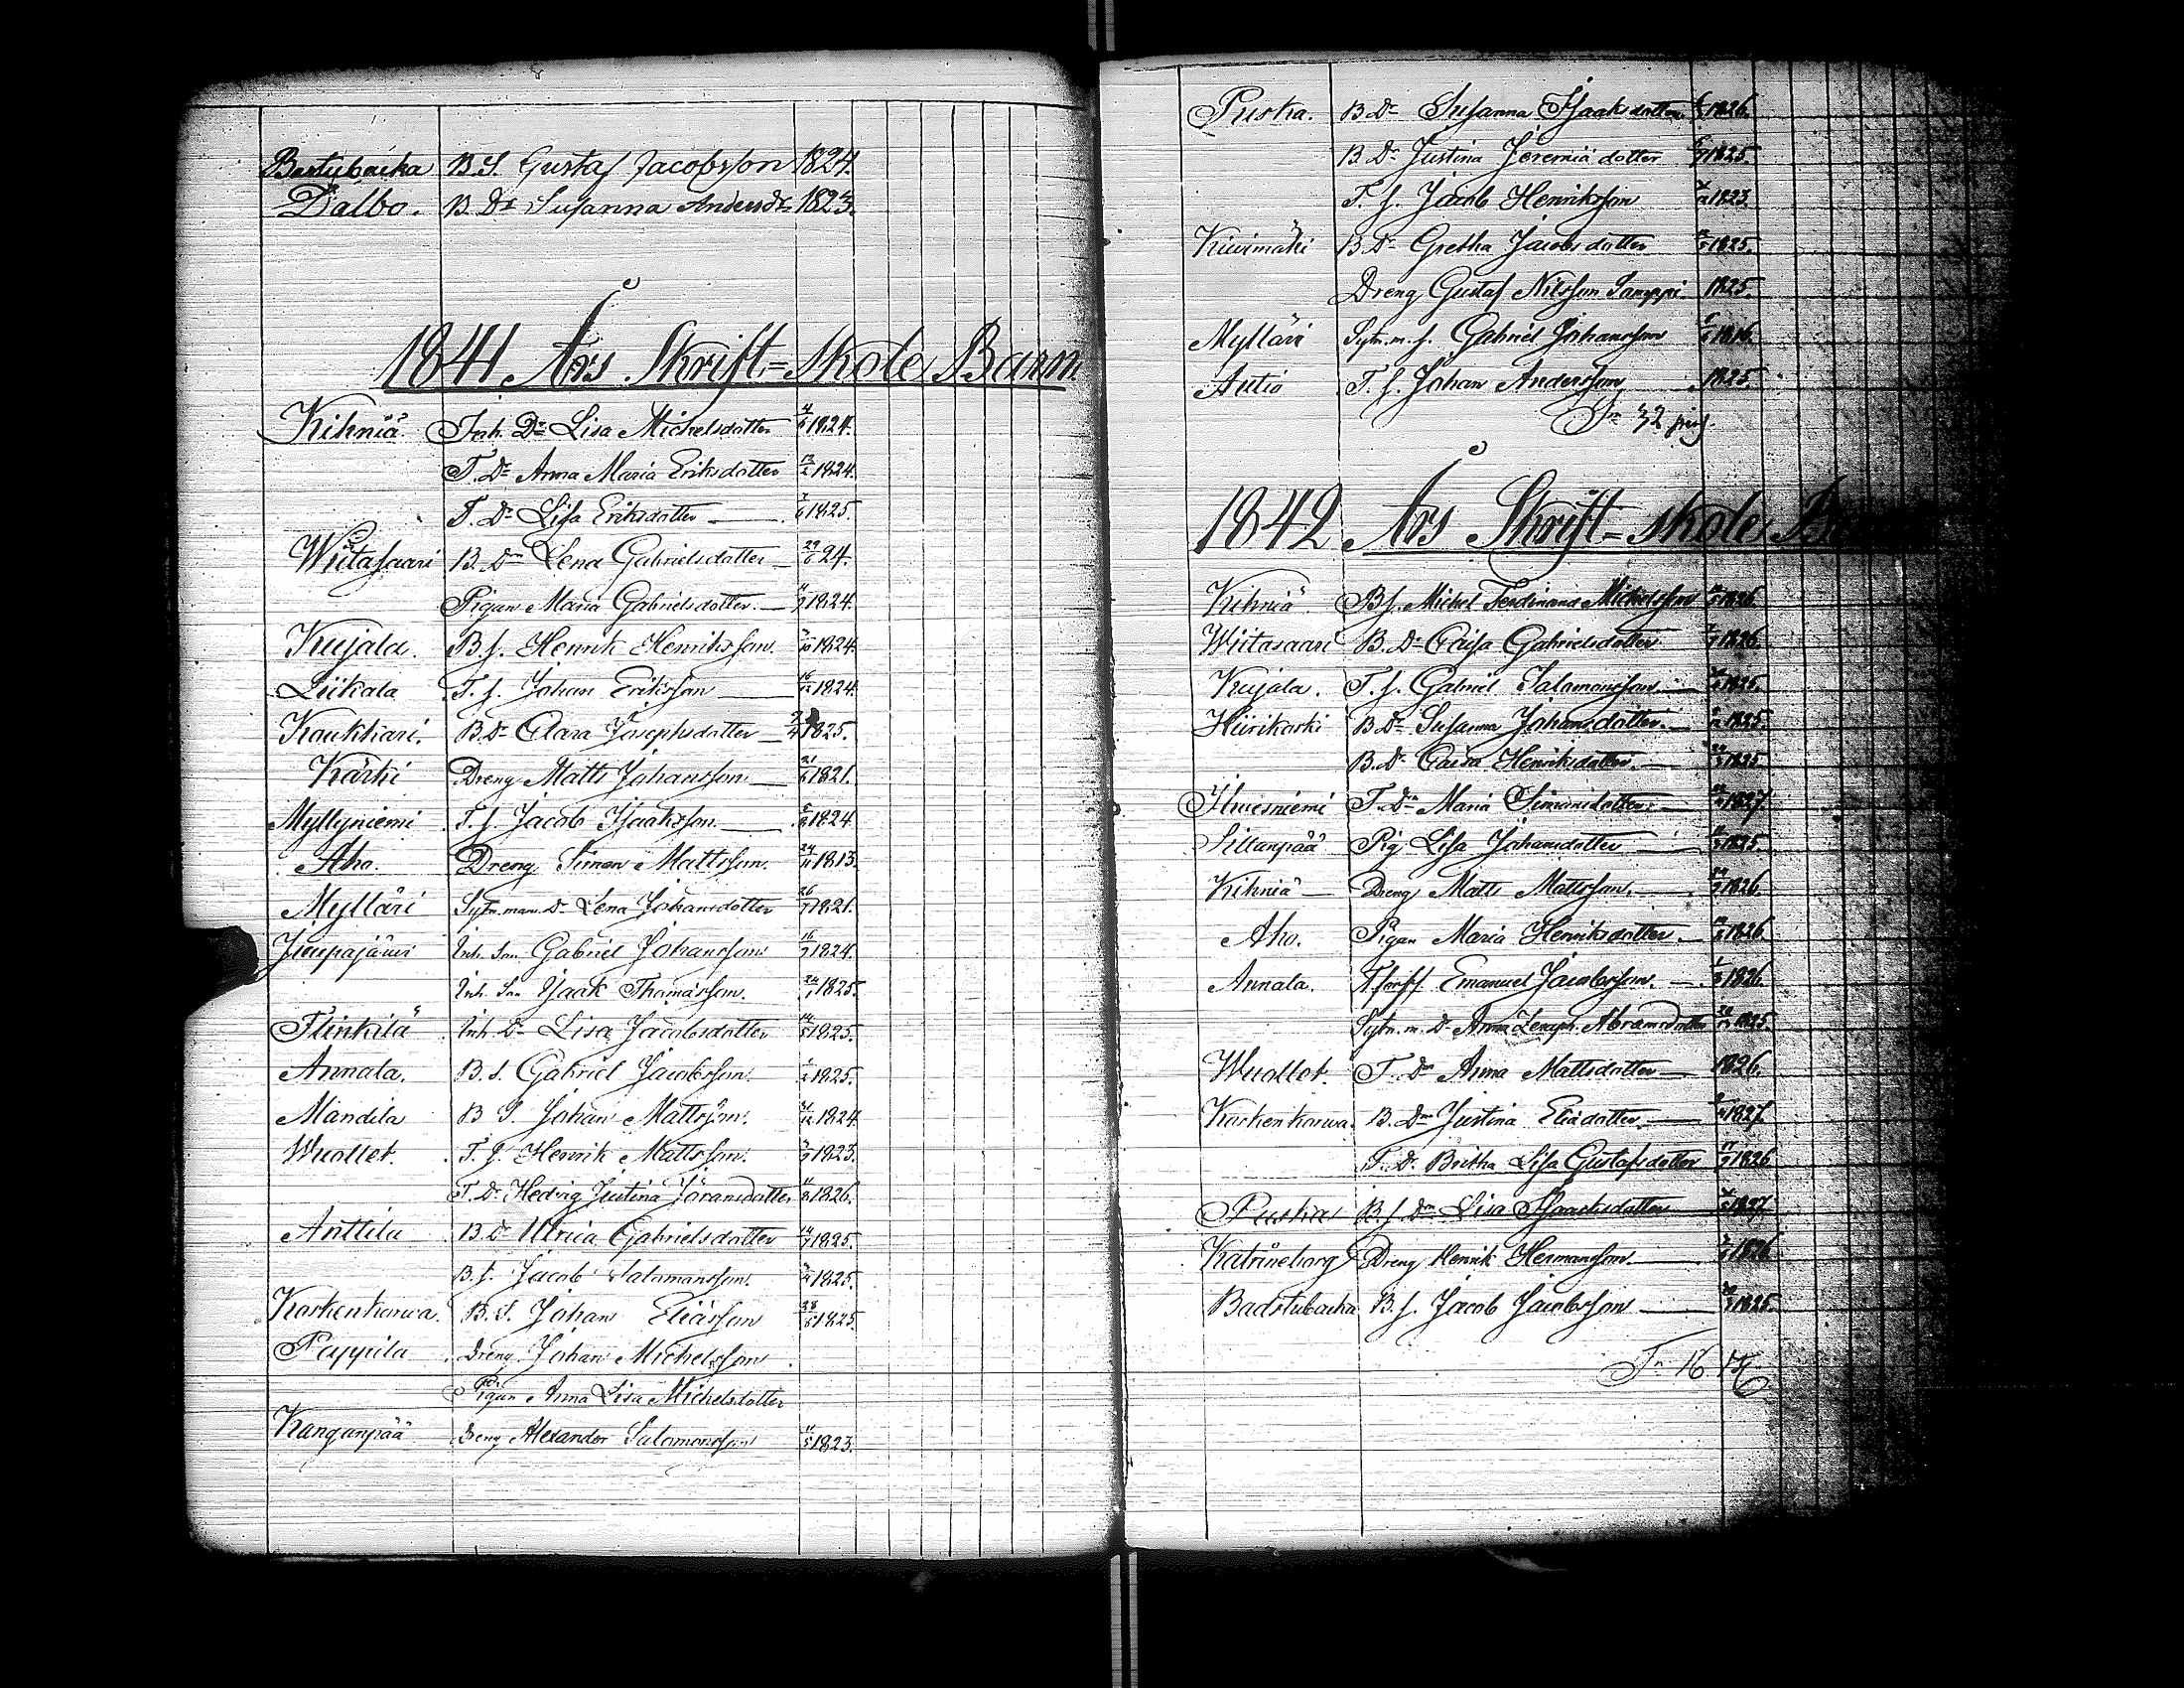 Bastubacka B. S. Gustaf Jacobsson 1824.
Dalbo. B. Dr Susanna Andersdr 1823.
1841 Års Skrift=skole Barn
Kihniä Inh. Dr Lisa Michelsdotter 4/6 1824.
T. Dr Anna Maria Eriksdotter 12/2 1824.
T. Dr Lisa Eriksdotter 1825.
Wiitasaari B. Dr Lena Gabrielsdotter 29/6 24.
Pigan Maria Gabrielsdotter 1824.
Kujala. B. S. Henrik Henriksson. 1824.
Liikala T. S. Johan Eriksson 16/12 1824.
Koukkari. B. Dr Clara Josephsdotter 1825.
Kärki Dreng Matts Johansson 21/6 1821.
Myllyniemi T. S. Jacob Isaaksson 1824.
Aho. Dreng Simon Mattsson. 24/11 1813.
Mylläri Sytn.man. Dr Lena Johansdotter 26/7 1821.
Jieupajärvi Inh. Son Gabriel Johansson 16/7 1824.
Inh. Son Isaak Thomasson. 24/1 1825.
Flinkilä Inh. Dr Lisa Jacobsdotter 14/5 1825.
Annala. B. S. Gabriel Jacobsson. 1825.
Mandila B. S. Johan Mattsson. 1824.
Wuollet. T. S. Henrik Mattsson. 1823.
T. Dr Hedvig Justina Göransdotter 1826.
Anttila B. Dr Ulrica Gabrielsdotter 14/7 1825.
B. S. Jacob Salomonsson. 1825.
Koskenkorwa. B. S. Johan Eliasson 28/5 1825.
Pappila Dreng Johan Michelsson
Pigan Anna Lisa Michelsdotter
Kanganpää Dreng Alexander Salomonsson 11/5 1823.
Puska. B. Dr Susanna Isaaksdotter 1826.
B. Dr Justina Jeremiä dotter 1825.
T. S. Jacob Henriksson 1823.
Kiwimäki B. Dr Gretha Jacobsdotter 1825.
Dreng Gustaf Nilsson Samppi 1825.
Mylläri Sytn. m. S. Gabriel Johansson 1816.
Autio T. S. Johan Andersson 1825.
Sa 32
1842 Års Skrift=skole Barn
Kihniä. B. S. Michel Ferdinand Michelsson 1826.
Wiitasaari B. Dr Caisa Gabrielsdotter 1826.
Kujala. T. S. Gabriel Salomonsson 1825.
Hiirikoski B. Dr Susanna Johansdotter 1825.
B. Dr Caisa Henriksdotter 1825
Ilwesniemi T. Dr Maria Simonsdotter 1827.
Sillanpää Pig Lisa Johansdotter 1825.
Kihniä Dreng Matts Mattsson. 1826.
Aho. Pigan Maria Henriksdotter 1826.
Annala. Emanuel Jacobsson. 1826.
Sytn. m. Dr Anna Abramsdotter 1825.
Wuollet. T. Dr Anna Mattsdotter 1826.
Koskenkorwa. B. Dr Justina Eliädotter 1827.
T. Dr Britha Lisa Gustafsdotter 17/9 1826.
Puska B. S. Dr Lisa Isaacksdotter 1827.
Katrineborg Dreng Henrik Hermansson 1826.
Badstubacka B. S. Jacob Jacobsson 1825.
Sa 16